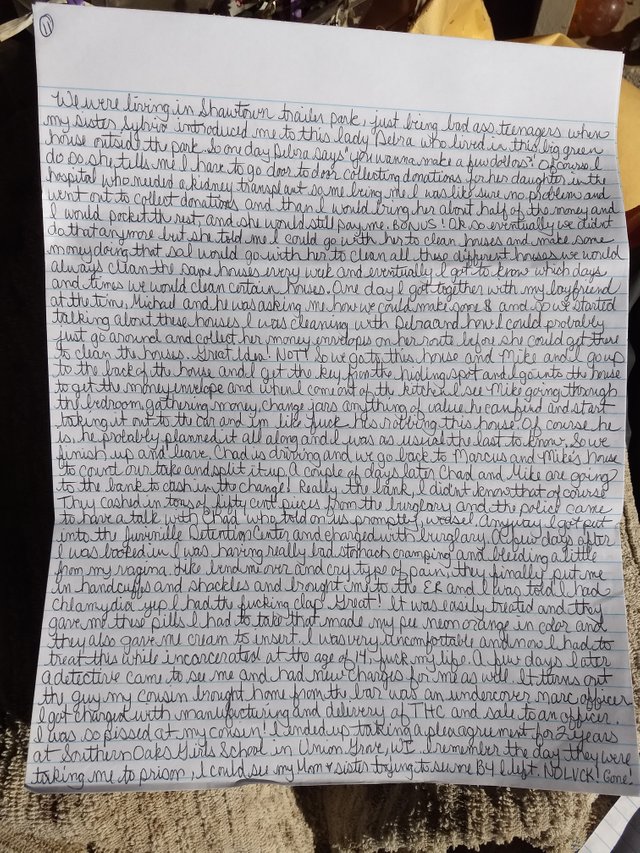 11
We were living in Shawtown trailer park, just being bad ass teenagers when
my sister Sylvia introduced me to this lady Debra who lived in this big green
house outside the park. So one day Debra says "you wanna make a few dollars?" Of course I
do so she tells me I have to go door to door collecting donations for her daughter in the
hospital who needed a kidney transplant so me being me I was like sure no problem and
went out to collect donations and than I would bring her about half of the money and
I would pocket the rest and she would still pay me. BONUS! Ok so eventually we didnt
do that anymore but she told me I could go with her to clean houses and make some
money doing that so I would go with her to clean all these different houses we would
always clean the same houses every week and eventually I got to know which days
and times we would clean certain houses. One day I got together with my boyfriend
at the time, Michael and he was asking me how we could make some $ and so we started
talking about these houses I was cleaning with Debra and how I could probably
just go around and collect her money envelopes on her route before she could get there
to clean the houses. Great Idea! NOT! So we go to this house and Mike and I go up
to the back of the house and I get the key from the hiding spot and I go into the house
to get the money envelope and when I come out of the kitchen I see Mike going through
the bedroom gathering money, change jars anything of value he can find and start
taking it out to the car and I'm like fuck. He's robbing this house. Of course he
is, he probably planned it all along and I was as usual the last to know. So we
finish up and leave. Chad is driving and we go back to Marcus and Mike's house
to count our take and split it up. A couple of days later Chad and Mike are going
to the bank to cash in the change! Really the bank, I didn't know that of course
They cashed in tons of fifty cent pieces from the burglary and the police came
to have a talk with Chad who told on us promptly, weasel. Anyway I got put
into the juvenille Detention Center and charged with burglary. A few days after
I was locked in I was having really bad stomach cramping and bleeding a little
from my vagina. Like bend me over and cry type of pain, they finally put me
in handcuffs and shackles and brought me to the ER and I was told I had
Chlamydia yep I had the fucking clap. Great! It was easily treated and they
gave me these pills I had to take that made my pee neon orange in color and
they also gave me cream to insert. I was very uncomfortable and now I had to
treat this while incarcerated at the age of 14, fuck my life. A few days later
a detective came to see me and had new charges for me as well. It turns out
the guy my cousin brought home from the bar was an undercover narc officer
I got charged with manufacturing and delivery of THC and sale to an officer
I was so pissed at my cousin! I ended up taking a plea agreement for 2 years
at Southern Oaks Girls School in Union Grove, WI. I remember the day they were
taking me to prison, I could see my Mom & sister trying to see me B4 I left. NO LUCK! Gone.